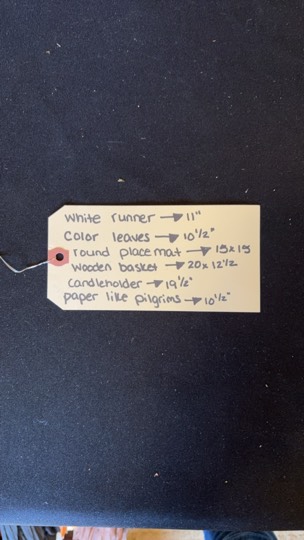 white runner → 11"
color leaves → 10 1/2"
round place mat → 15x15
wooden basket → 20x 12 1/2
candleholder → 19 1/2"
paper like pilgrims → 10 1/2"